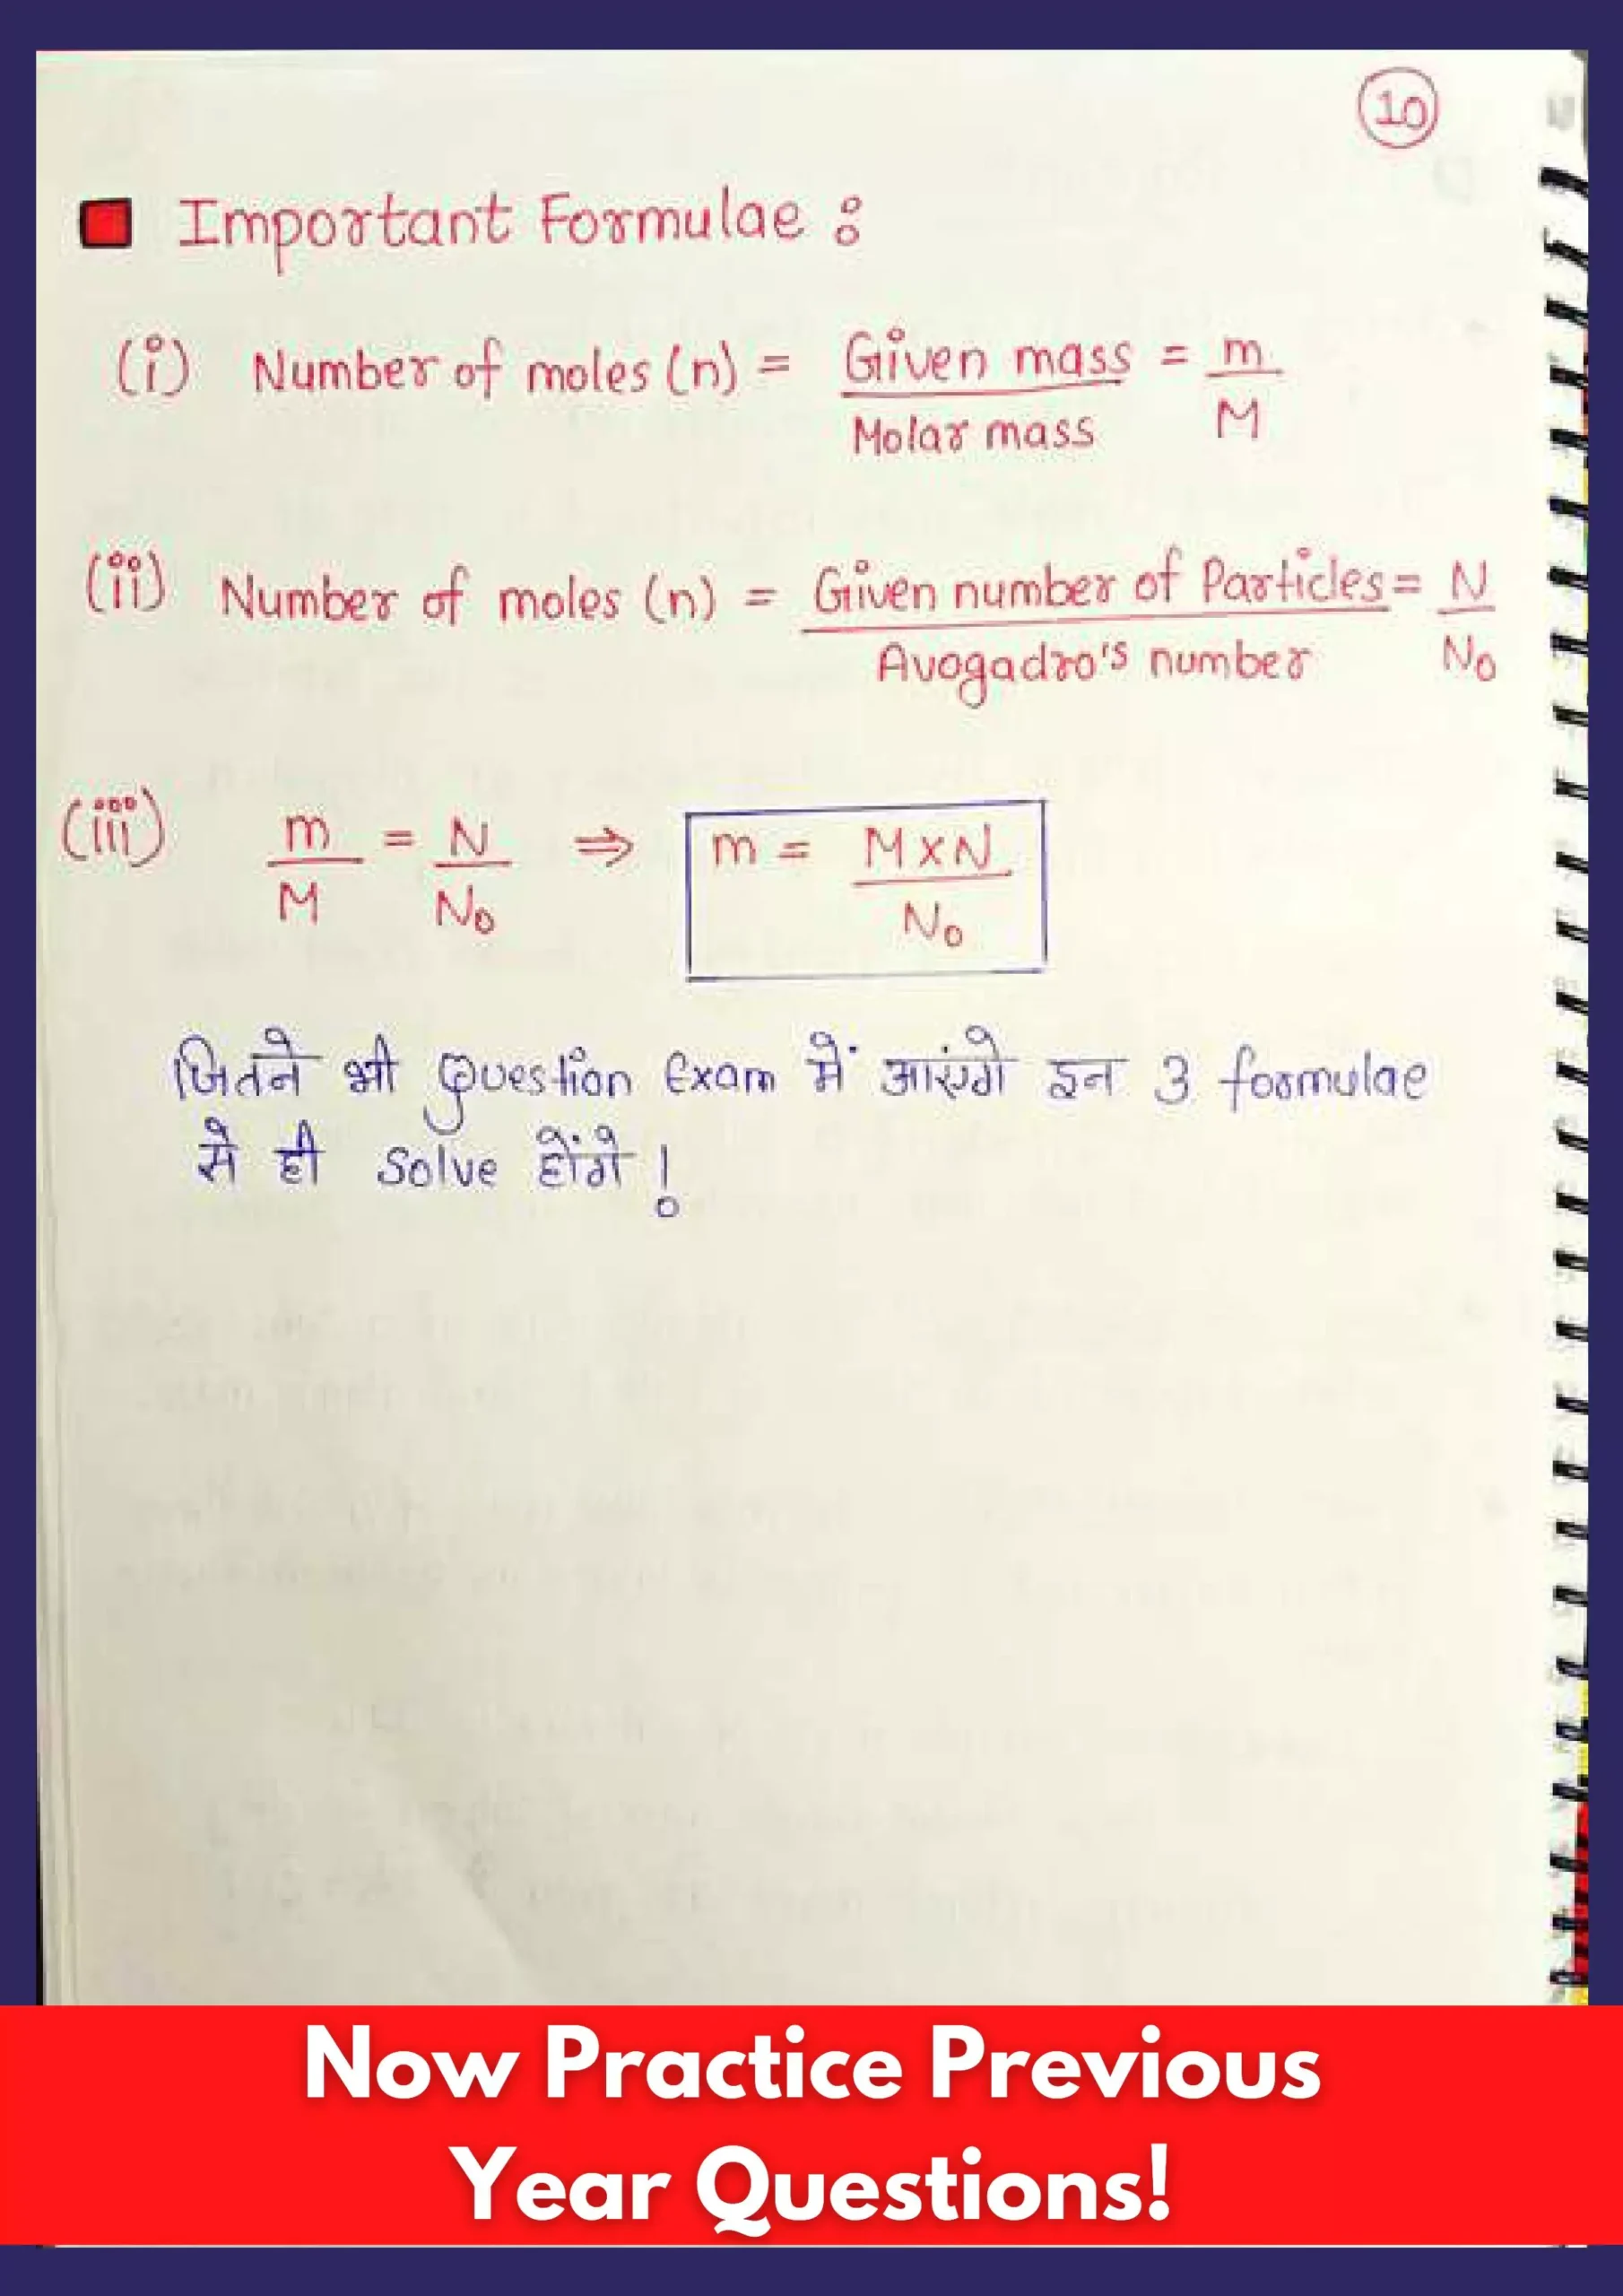 10
Important Formulae :
(i) Number of moles (n) = Given mass / Molar mass = m / M
(ii) Number of moles (n) = Given number of Particles / Avogadro's number = N / N₀
(iii) m / M = N / N₀ ⇒ m = M×N / N₀
जितने भी Question Exam में आएंगे इन 3 formulae
से ही solve होंगे !
Now Practice Previous
Year Questions!